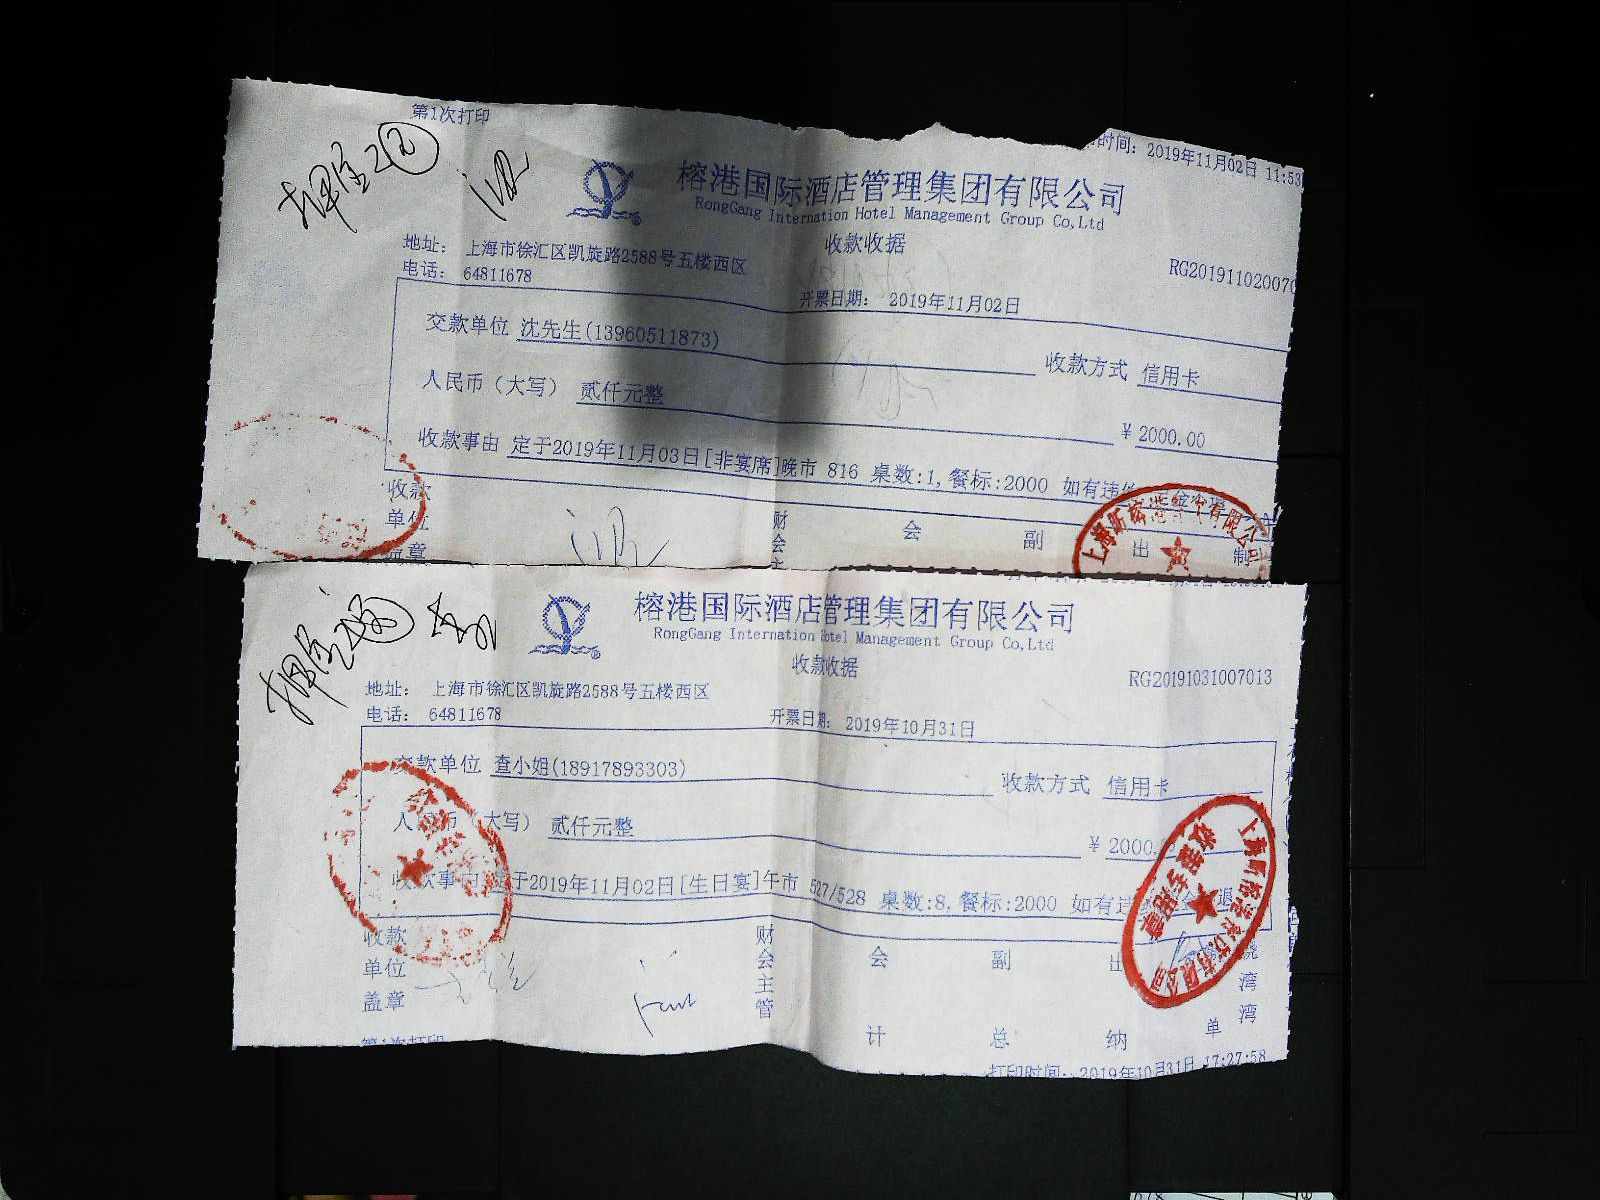 第1次打印
时间: 2019年11月02日 11:53
押金
榕港国际酒店管理集团有限公司
RongGang International Hotel Management Group Co,Ltd
收款收据
地址: 上海市徐汇区凯旋路2588号五楼西区
电话: 64811678
RG201911020070
开票日期: 2019年11月02日
交款单位 沈先生(13960511873)
收款方式 信用卡
人民币（大写） 贰仟元整
￥2000.00
收款事由 定于2019年11月03日[非宴席]晚市 816 桌数:1,餐标:2000 如有违
收款
单位
盖章
财
会
会
副
出
制
押金
榕港国际酒店管理集团有限公司
RongGang International Hotel Management Group Co,Ltd
收款收据
RG20191031007013
地址: 上海市徐汇区凯旋路2588号五楼西区
电话: 64811678
开票日期: 2019年10月31日
交款单位 查小姐(18917893303)
收款方式 信用卡
人民币（大写） 贰仟元整
￥2000.
收款事由 定于2019年11月02日[生日宴]午市 527/528 桌数:8,餐标:2000 如有违 退
收款专用章
收款
单位
盖章
财会主管
会计
副总
出纳
单
湾湾
第1次打印
打印时间: 2019年10月31日 17:27:58